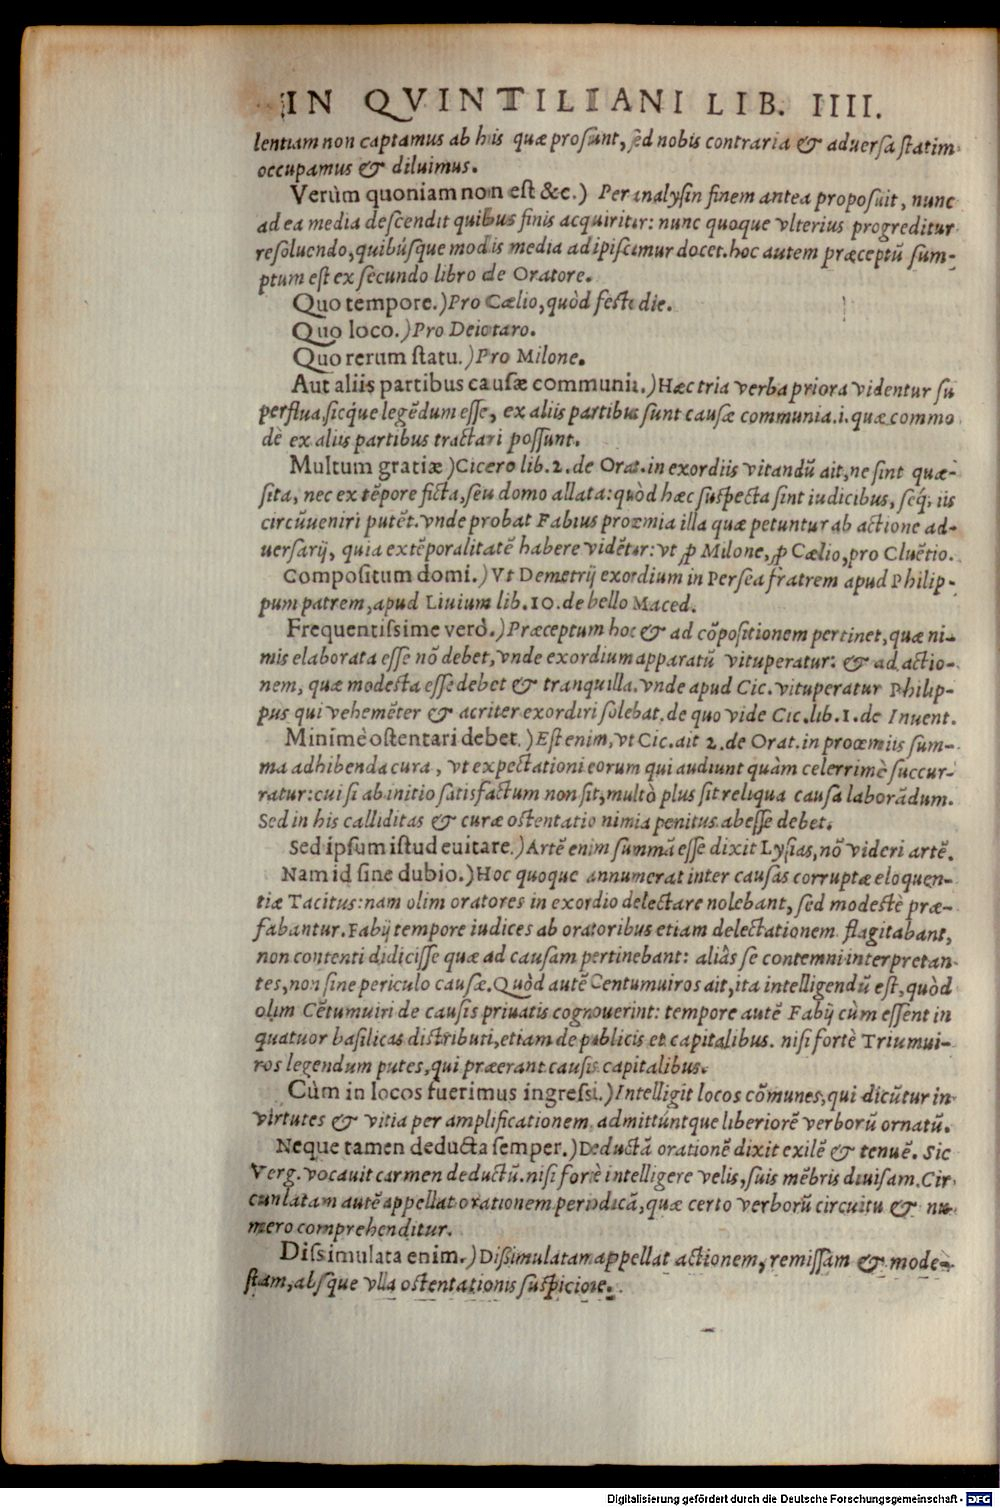 IN QVINTILIANI LIB. IIII.
lentiam non captamus ab his quæ prosunt, sed nobis contraria & aduersa statim
occupamus & diluimus.
Verùm quoniam non est &c.) Per analysin finem antea proposuit, nunc
ad ea media descendit quibus finis acquiritur: nunc quoque vlterius progreditur
resoluendo, quibúsque modis media adipiscimur docet. hoc autem præceptũ sum-
ptum est ex secundo libro de Oratore.
Quo tempore.) Pro Cælio, quòd festi die.
Quo loco.) Pro Deiotaro.
Quo rerum statu.) Pro Milone.
Aut aliis partibus causæ communii.) Hæc tria verba priora videntur su
perflua, sicq́ue legẽdum esse, ex aliis partibus sunt causæ communia. i. quæ commo
dè ex aliis partibus tractari possunt.
Multum gratiæ) Cicero lib. 2. de Orat. in exordiis vitandũ ait, ne sint quæ-
sita, nec ex tẽpore ficta, seu domo allata: quòd hæc suspecta sint iudicibus, seq́; iis
circũueniri putẽt. vnde probat Fabius proœmia illa quæ petuntur ab actione ad-
uersarij, quia extẽporalitatẽ habere vidẽtur: vt ꝓ Milone, ꝓ Cælio, pro Cluẽtio.
Compositum domi.) Vt Demetrij exordium in Persea fratrem apud Philip-
pum patrem, apud Liuium lib. 10. de bello Maced.
Frequentissime verò.) Præceptum hoc & ad cõpositionem pertinet, quæ ni-
mis elaborata esse nõ debet, vnde exordium apparatũ vituperatur: & ad actio-
nem, quæ modesta esse debet & tranquilla. vnde apud Cic. vituperatur Philip-
pus qui vehemẽter & acriter exordiri solebat. de quo vide Cic. lib. 1. de Inuent.
Minimè ostentari debet.) Est enim, vt Cic. ait 2. de Orat. in proœmiis sum-
ma adhibenda cura, vt expectationi eorum qui audiunt quàm celerrimè succur-
ratur: cui si ab initio satisfactum non sit, multò plus sit reliqua causa laborãdum.
Sed in his calliditas & curæ ostentatio nimia penitus abesse debet.
Sed ipsum istud euitare.) Artẽ enim summã esse dixit Lysias, nõ videri artẽ.
Nam id sine dubio.) Hoc quoque annumerat inter causas corruptæ eloquen-
tiæ Tacitus: nam olim oratores in exordio delectare nolebant, sed modestè præ-
fabantur. Fabij tempore iudices ab oratoribus etiam delectationem flagitabant,
non contenti didicisse quæ ad causam pertinebant: aliâs se contemni interpretan-
tes, non sine periculo causæ. Quòd autẽ Centumuiros ait, ita intelligendũ est, quòd
olim Cẽtumuiri de causis priuatis cognouerint: tempore autẽ Fabij cùm essent in
quatuor basilicas distributi, etiam de publicis et capitalibus. nisi fortè Triumui-
ros legendum putes, qui præerant causis capitalibus.
Cùm in locos fuerimus ingressi.) Intelligit locos cõmunes, qui dicũtur in
virtutes & vitia per amplificationem. admittúntque liberiorẽ verborũ ornatũ.
Neque tamen deducta semper.) Deductã orationẽ dixit exilẽ & tenuẽ. Sic
Verg. vocauit carmen deductũ. nisi fortè intelligere velis, suis mẽbris diuisam. Cir
cunlatam autẽ appellat orationem periodicã, quæ certo verborũ circuitu & nu
mero comprehenditur.
Dissimulata enim.) Dissimulatam appellat actionem, remissam & mode-
stam, absque vlla ostentationis suspicione.
Digitalisierung gefördert durch die Deutsche Forschungsgemeinschaft - DFG